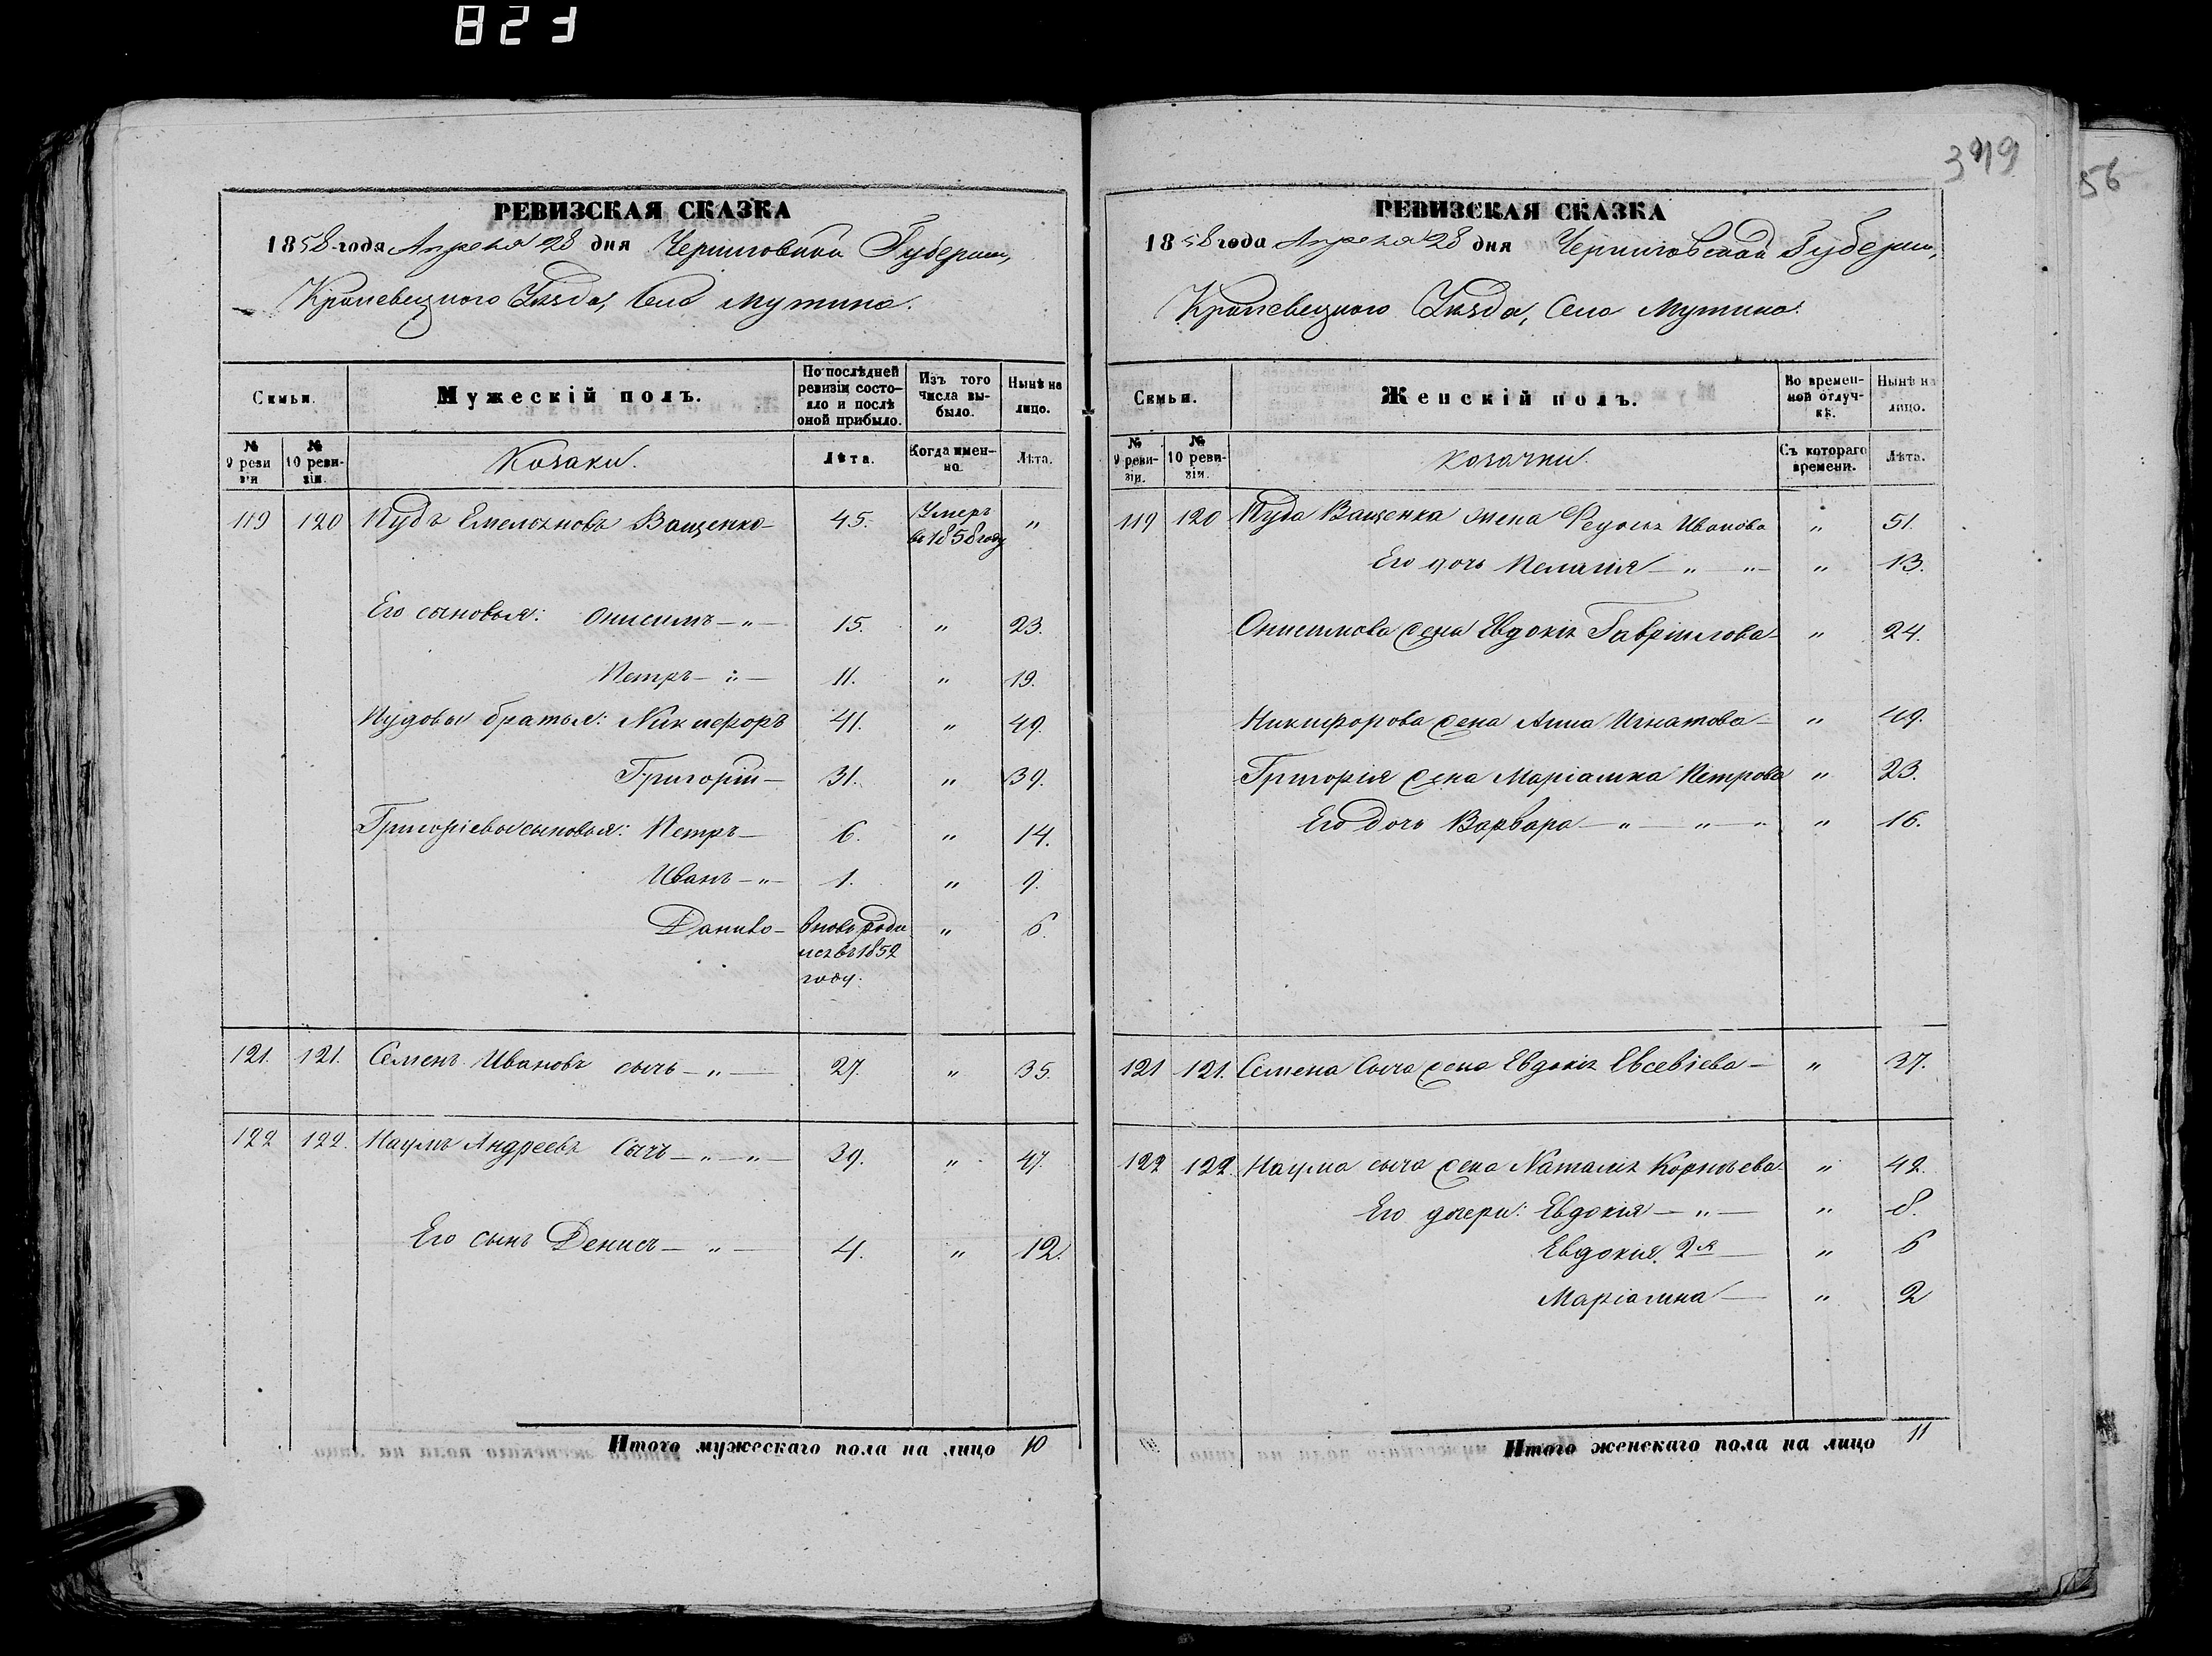 823
РЕВИЗСКАЯ СКАЗКА
1858 года Апреля 28 дня Черниговской Губернии,
Кролевецкого Уѣзда, Села Мутина.
Семьи.
Мужескій полъ.
По послѣдней ревизіи состо-
яло и послѣ оной прибыло.
Изъ того числа вы-
было.
Нынѣ на лицо.
№ 9 реви зіи
№ 10 реви-
зіи.
Козаки.
Лѣта.
Когда имен-
но.
Лѣта.
119 120 Пудъ Емельяновъ Ващенко 45. Умеръ „
въ 1858 году
Его сыновья: Онисимъ — „ — 15. „ 23.
Петръ — „ — 11. „ 19.
Пудовы братья: Никифоръ 41. „ 49.
Григорій — 31. „ 39.
Григоріевы сыновья: Петръ — 6. „ 14.
Иванъ — „ — 1. „ 9.
Данило — вновь роди „ 6.
лся въ 1852
году.
121. 121. Семенъ Ивановъ Сычъ — „ — 27. „ 35.
122 122. Наумъ Андреевъ Сычъ — „ — „ — 39. „ 47.
Его сынъ Денисъ — „ — 4. „ 12.
Итого мужескаго пола на лицо 10
379
56
РЕВИЗСКАЯ СКАЗКА
1858 года Апреля 28 дня Черниговской Губерніи,
Кролевецкого Уѣзда, Села Мутина.
Семьи.
Женскій полъ.
Во времен-
ной отлуч-
кѣ.
Нынѣ на лицо.
№ 9 реви-
зіи.
№ 10 реви-
зіи.
Козачки.
Съ котораго времени.
Лѣта.
119 120 Пуда Ващенка жена Иванова „ 51.
Его дочь Пелагія — „ — „ — „ 13.
Онисимова жена Евдокія Гавріилова — „ 24.
Никифорова жена Анна Игнатова — „ 49.
Григорія жена Маріамна Петрова „ 23.
Его дочь Варвара — „ — „ — „ „ 16.
121 121. Семена Сыча жена Евдокія Евсевіева — „ 37.
122 122. Наума Сыча жена Наталія Корнѣева „ 42.
Его дочери: Евдокія — „ — „ 8.
Евдокія 2я — „ 6
Маріамна — „ 2
Итого женскаго пола на лицо 11